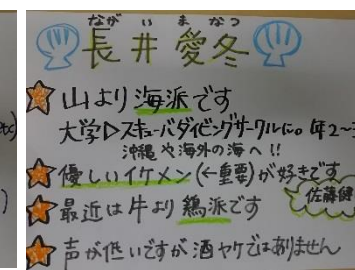 ながい まなつ
長井 愛冬
山より海派です
大学▷スキューバダイビングサークルに。年2~3
沖縄や海外の海へ!!
優しいイケメン(←重要)が好きです
佐藤健
最近は牛より鶏派です
声が低いですが酒ヤケではありません